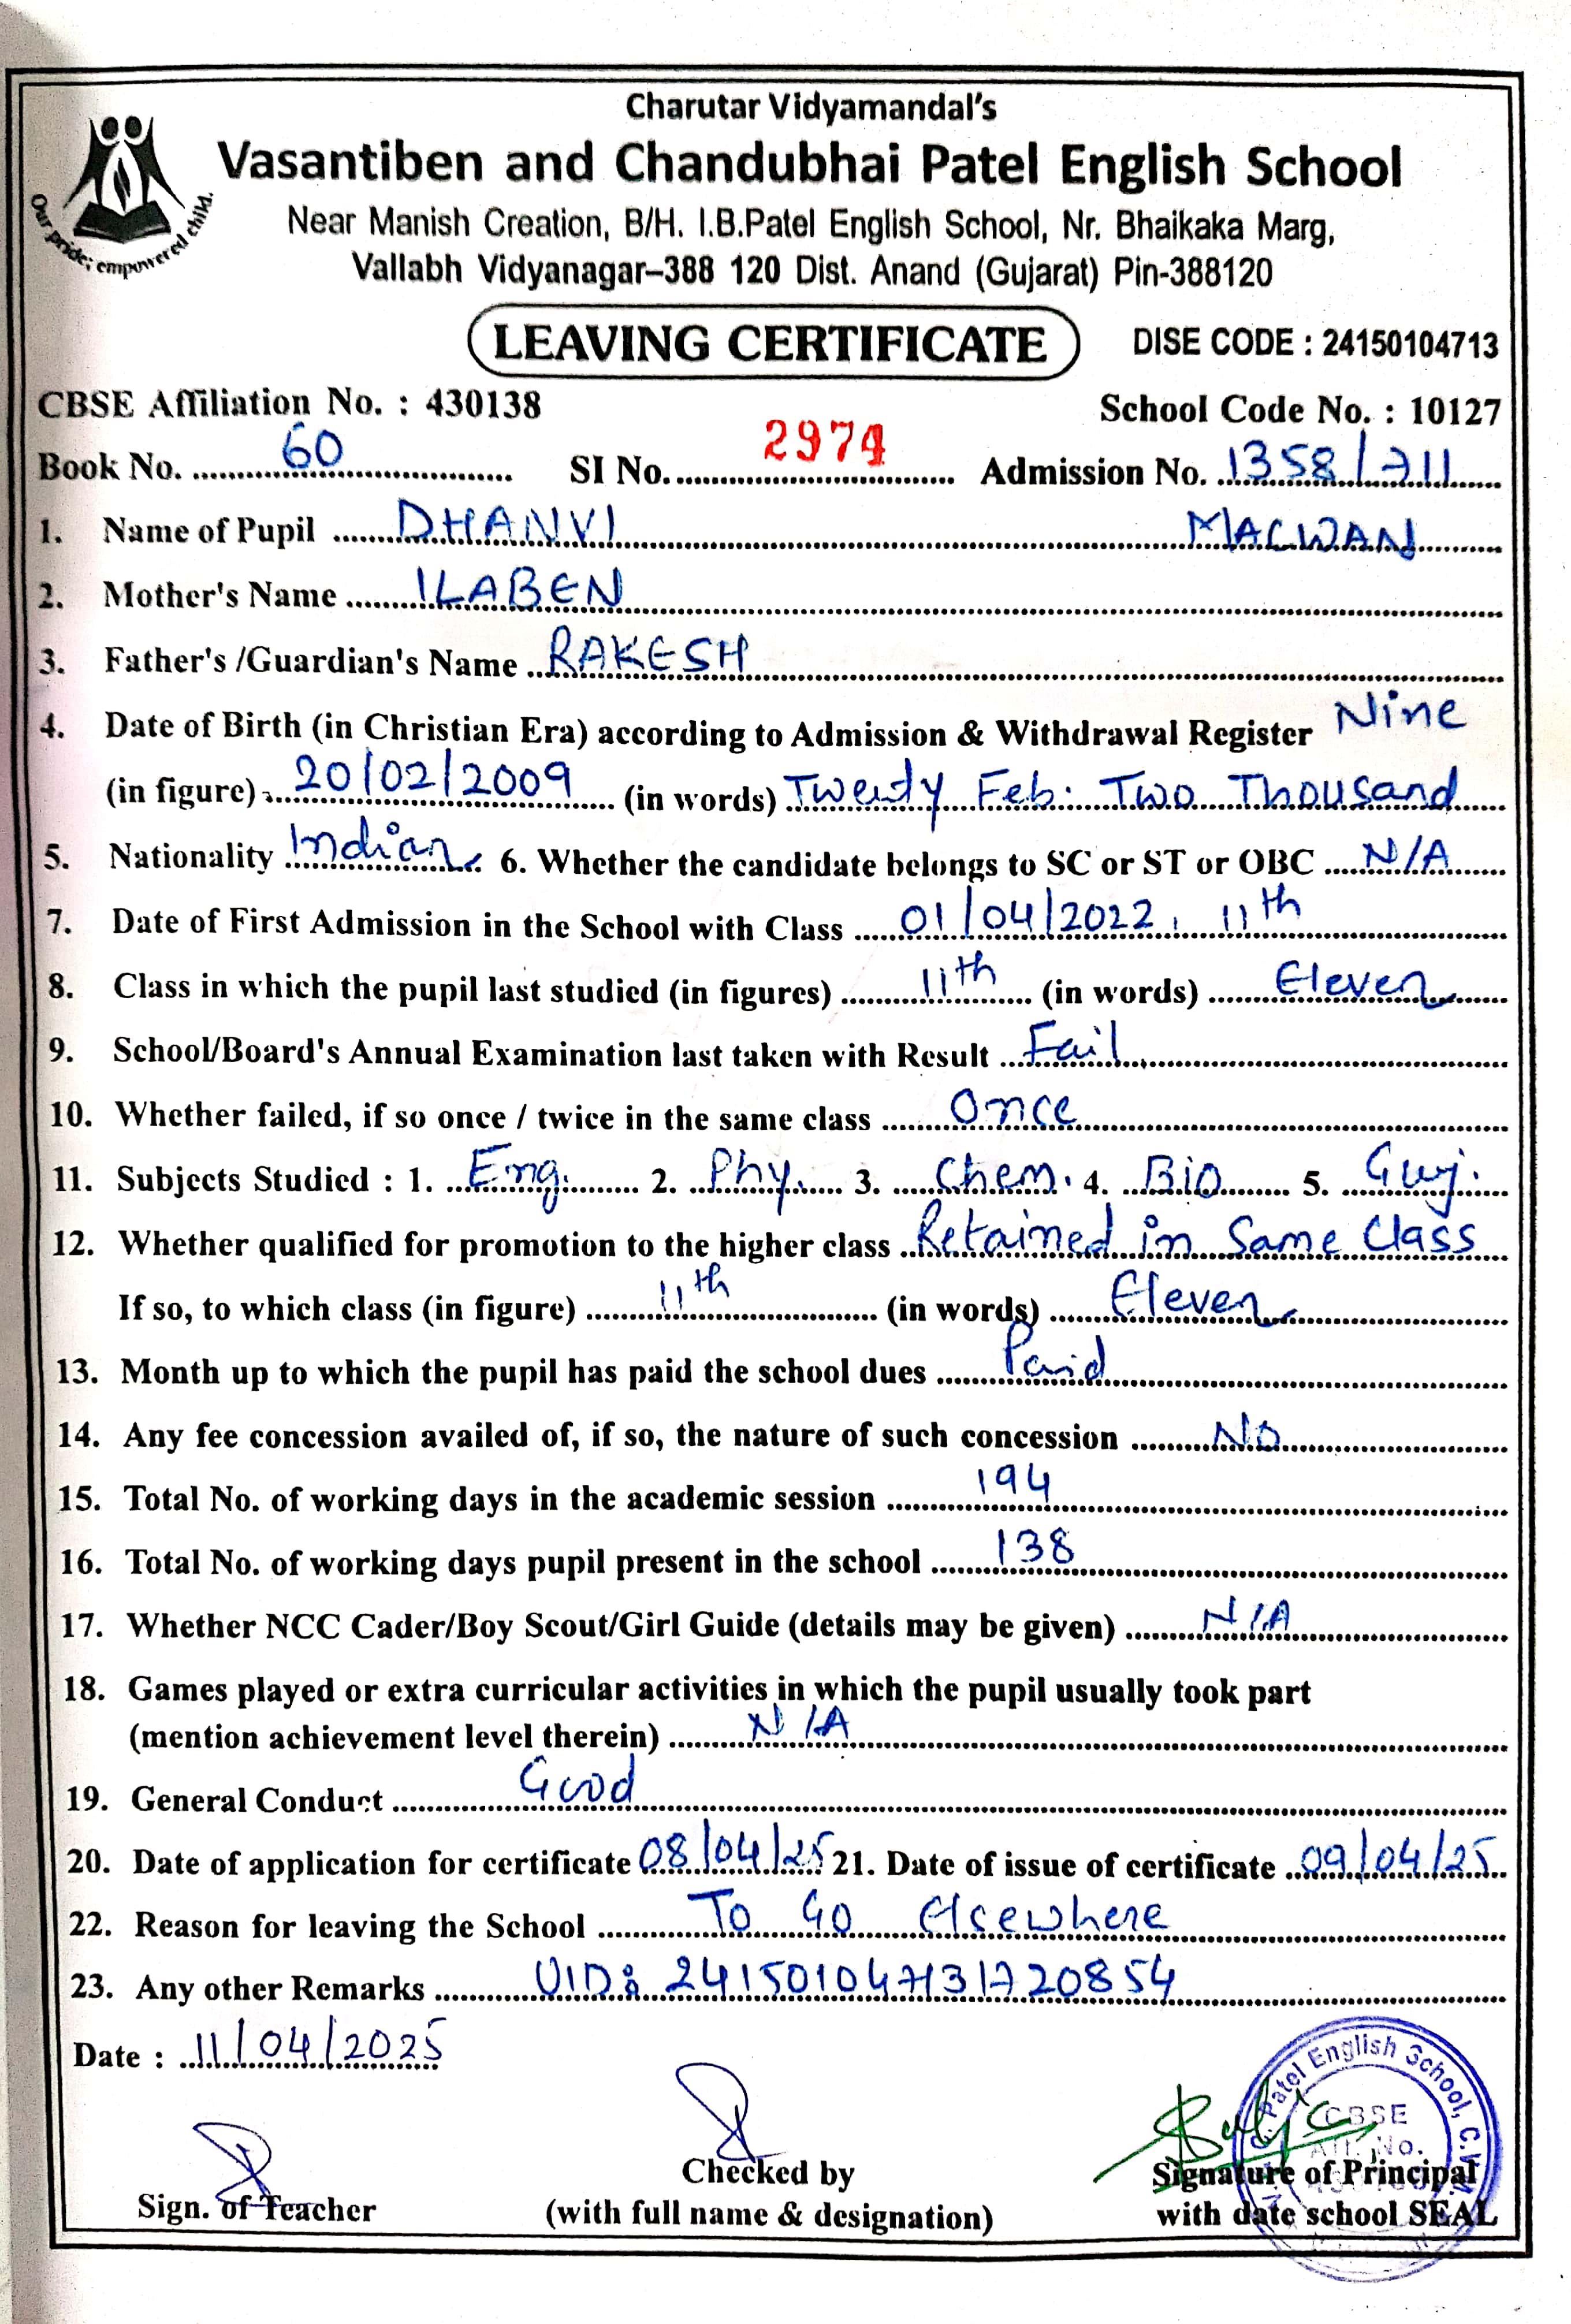 Charutar Vidyamandal's
Vasantiben and Chandubhai Patel English School
Our pride; empowered child.
Near Manish Creation, B/H. I.B.Patel English School, Nr. Bhaikaka Marg,
Vallabh Vidyanagar–388 120 Dist. Anand (Gujarat) Pin-388120
LEAVING CERTIFICATE DISE CODE : 24150104713
CBSE Affiliation No. : 430138 School Code No. : 10127
Book No. 60 SI No. 2974 Admission No. 1358/711
1. Name of Pupil DHANVI MACWAN
2. Mother's Name ILABEN
3. Father's /Guardian's Name RAKESH
4. Date of Birth (in Christian Era) according to Admission & Withdrawal Register Nine
(in figure) 20/02/2009 (in words) Twenty Feb. Two Thousand
5. Nationality Indian 6. Whether the candidate belongs to SC or ST or OBC N/A
7. Date of First Admission in the School with Class 01/04/2022, 11th
8. Class in which the pupil last studied (in figures) 11th (in words) Eleven
9. School/Board's Annual Examination last taken with Result Fail
10. Whether failed, if so once / twice in the same class Once
11. Subjects Studied : 1. Eng. 2. Phy. 3. Chem. 4. Bio 5. Guj.
12. Whether qualified for promotion to the higher class Retained in Same Class
If so, to which class (in figure) 11th (in words) Eleven
13. Month up to which the pupil has paid the school dues Paid
14. Any fee concession availed of, if so, the nature of such concession No
15. Total No. of working days in the academic session 194
16. Total No. of working days pupil present in the school 138
17. Whether NCC Cader/Boy Scout/Girl Guide (details may be given) N/A
18. Games played or extra curricular activities in which the pupil usually took part
(mention achievement level therein) N/A
19. General Conduct Good
20. Date of application for certificate 08/04/25 21. Date of issue of certificate 09/04/25
22. Reason for leaving the School To Go Elsewhere
23. Any other Remarks UID: 241501047131720854
Date : 11/04/2025
Patel English School, C.V.M.
CBSE
Aff. No.
Sign. of Teacher
Checked by
(with full name & designation)
Signature of Principal
with date school SEAL